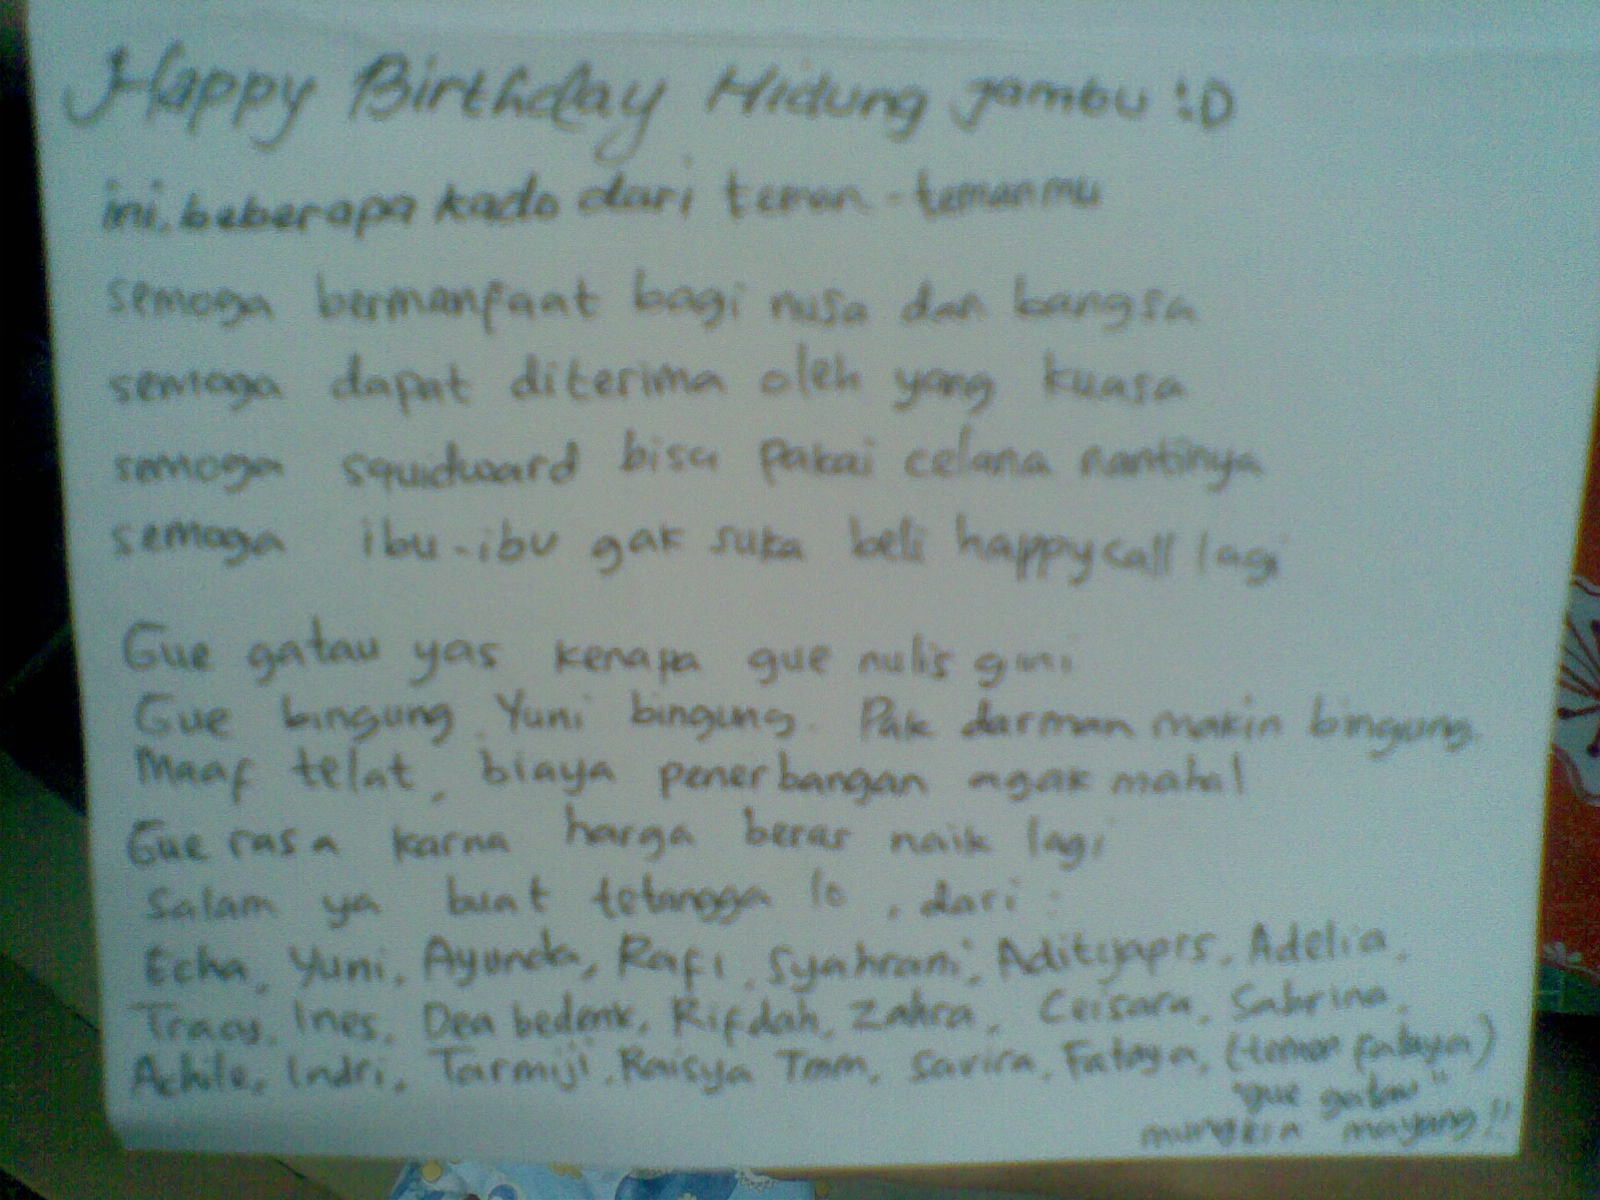 Happy Birthday Hidung jambu :D
ini, beberapa kado dari teman-temanmu
semoga bermanfaat bagi nusa dan bangsa
semoga dapat diterima oleh yang kuasa
semoga squidward bisa pakai celana nantinya
semoga ibu-ibu gak suka beli happycall lagi
Gue gatau yas kenapa gue nulis gini
Gue bingung, Yuni bingung. Pak darman makin bingung.
Maaf telat, biaya penerbangan agak mahal
Gue rasa karna harga beras naik lagi
Salam ya buat tetangga lo, dari :
Echa, Yuni, Ayunda, Rafi, Syahrani, Adityaprs, Adelia,
Tracy, Ines, Dea bedenk, Rifdah, Zahra, Ceisara, Sabrina,
Achile, Indri, Tarmiji, Raisya Tmm, Savira, Fataya, (temon fataya)
"gue gatau"
mungkin mayang!!